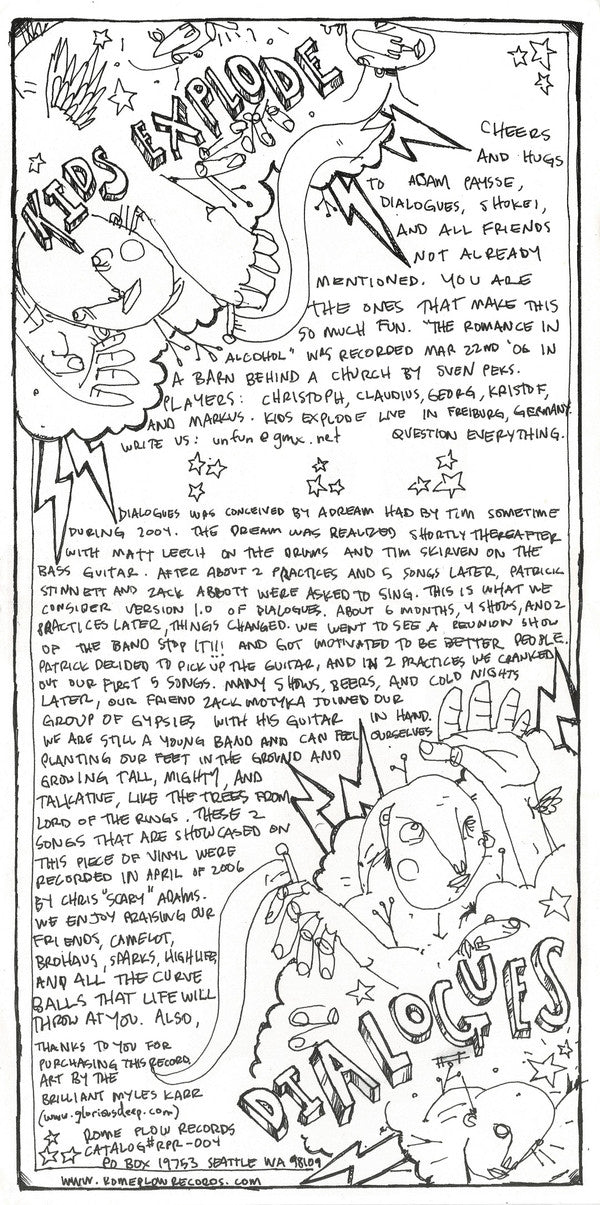 KIDS EXPLODE
CHEERS
AND HUGS
TO ADAM PAYSSE,
DIALOGUES, SHOKEI,
AND ALL FRIENDS
NOT ALREADY
MENTIONED. YOU ARE
THE ONES THAT MAKE THIS
SO MUCH FUN. "THE ROMANCE IN
ALCOHOL" WAS RECORDED MAR 22ND '06 IN
A BARN BEHIND A CHURCH BY SVEN PEKS.
PLAYERS: CHRISTOPH, CLAUDIUS, GEORG, KRISTOF,
AND MARKUS. KIDS EXPLODE LIVE IN FREIBURG, GERMANY.
WRITE US: unfun@gmx.net QUESTION EVERYTHING.
DIALOGUES WAS CONCEIVED BY A DREAM HAD BY TIM SOMETIME
DURING 2004. THE DREAM WAS REALIZED SHORTLY THEREAFTER
WITH MATT LEECH ON THE DRUMS AND TIM SKIRVEN ON THE
BASS GUITAR. AFTER ABOUT 2 PRACTICES AND 5 SONGS LATER, PATRICK
STINNETT AND ZACK ABBOTT WERE ASKED TO SING. THIS IS WHAT WE
CONSIDER VERSION 1.0 OF DIALOGUES. ABOUT 6 MONTHS, 4 SHOWS, AND 2
PRACTICES LATER, THINGS CHANGED. WE WENT TO SEE A REUNION SHOW
OF THE BAND STOP IT!!! AND GOT MOTIVATED TO BE BETTER PEOPLE.
PATRICK DECIDED TO PICK UP THE GUITAR, AND IN 2 PRACTICES WE CRANKED
OUT OUR FIRST 5 SONGS. MANY SHOWS, BEERS, AND COLD NIGHTS
LATER, OUR FRIEND ZACK MOTYKA JOINED OUR
GROUP OF GYPSIES WITH HIS GUITAR IN HAND.
WE ARE STILL A YOUNG BAND AND CAN FEEL OURSELVES
PLANTING OUR FEET IN THE GROUND AND
GROWING TALL, MIGHTY, AND
TALKATIVE, LIKE THE TREES FROM
LORD OF THE RINGS. THESE 2
SONGS THAT ARE SHOWCASED ON
THIS PIECE OF VINYL WERE
RECORDED IN APRIL OF 2006
BY CHRIS "SCARY" ADAMS.
WE ENJOY PRAISING OUR
FRIENDS, CAMELOT,
BROHAUS, SPARKS, HIGHLIFE,
AND ALL THE CURVE
BALLS THAT LIFE WILL
THROW AT YOU. ALSO,
THANKS TO YOU FOR
PURCHASING THIS RECORD.
ART BY THE
BRILLIANT MYLES KARR
(www.gloriousdeep.com)
DIALOGUES
ROME PLOW RECORDS
CATALOG#RPR-004
PO BOX 19753 SEATTLE WA 98109
WWW.ROMEPLOWRECORDS.COM